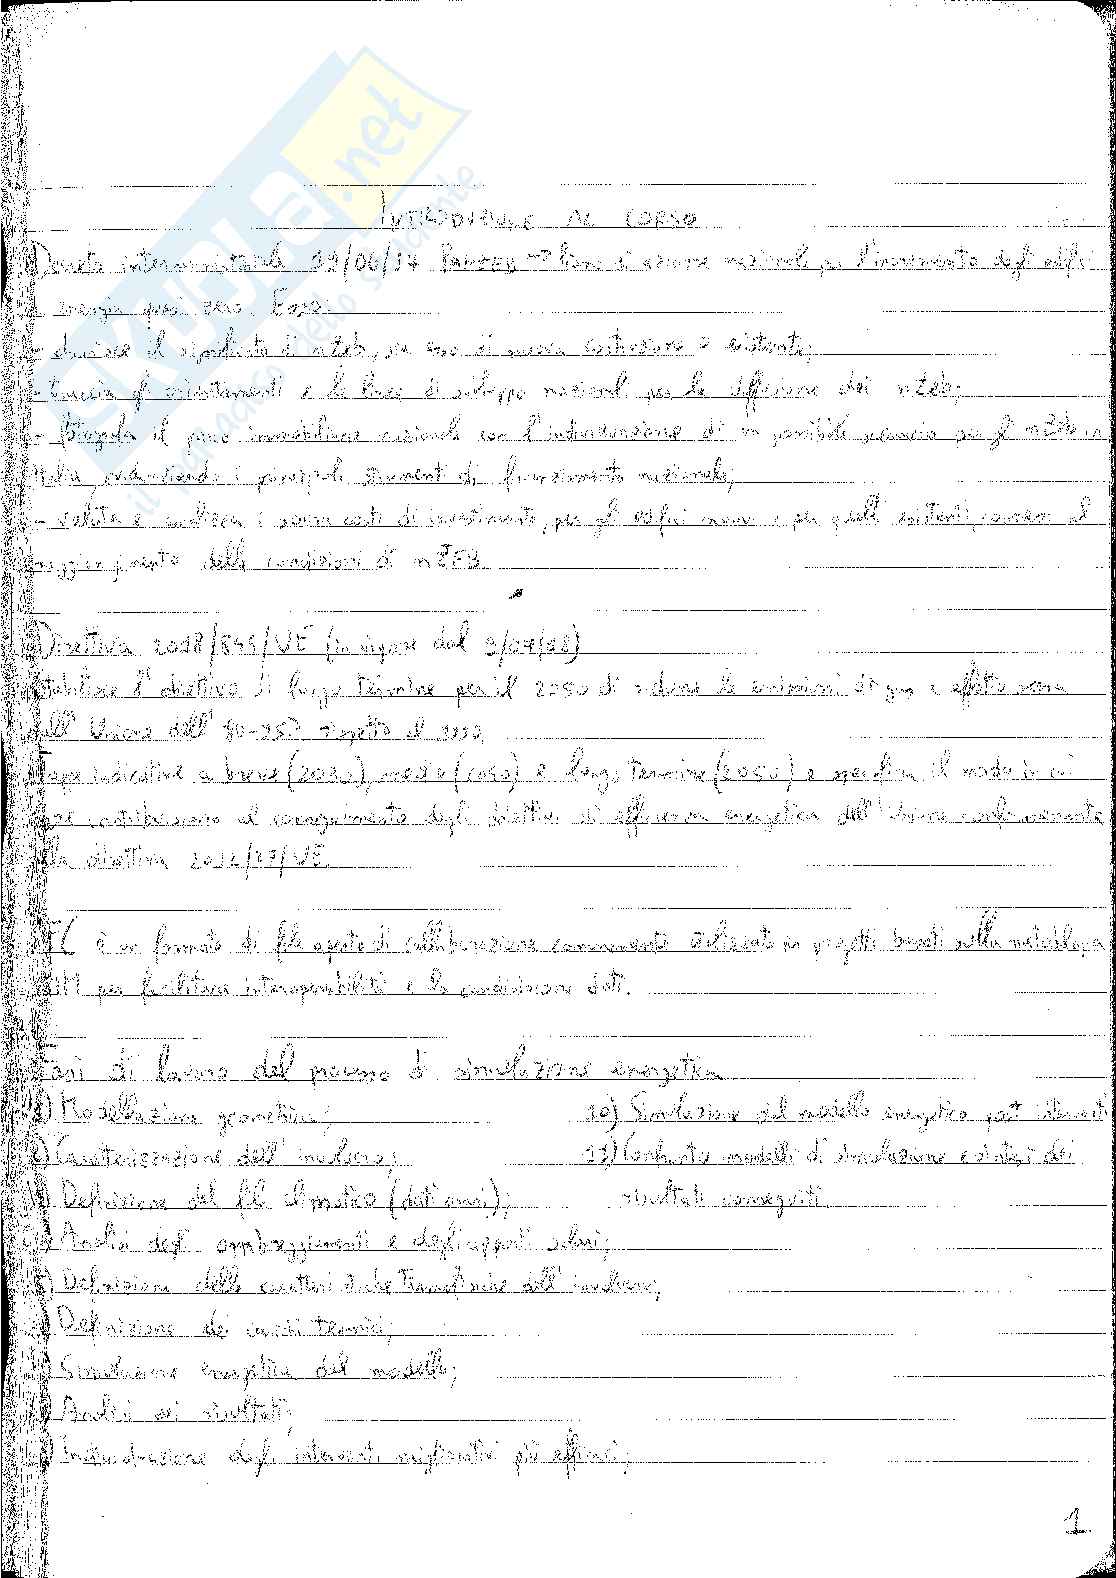 SKUOLA.net
il paradiso dello studente
INTRODUZIONE AL CORSO
Decreto interministeriale 19/06/17 PANZEB → Piano d'azione nazionale per l'incremento degli edifici
energia quasi zero. Esso:
- chiarisce il significato di nZEB, sia esso di nuova costruzione o esistente;
- traccia gli orientamenti e le linee di sviluppo nazionali per la diffusione dei nZEB;
- fotografa il parco immobiliare nazionale con l'individuazione di un possibile scenario per gli nZEB in
Italia, evidenziando i principali strumenti di finanziamento nazionale;
- valuta e analizza i costi di investimento, per gli edifici nuovi e per quelli esistenti, al
raggiungimento delle condizioni di nZEB.
Direttiva 2018/844/UE (in vigore dal 9/07/18)
Stabilisce l'obiettivo di lungo termine per il 2050 di ridurre le emissioni di gas a effetto serra
nell'Unione dell'80-95% rispetto al 1990.
Tappe indicative a breve (2030), medio (2040) e lungo termine (2050) e specifica il modo in cui
esse contribuiscono al conseguimento degli obiettivi di efficienza energetica dell'Unione conformemente
alla direttiva 2012/27/UE.
è un formato di file aperto di collaborazione comunemente utilizzato in progetti basati sulla metodologia
BIM per facilitare interoperabilità e la condivisione dati.
Fasi di lavoro del processo di simulazione energetica
1) Modellazione geometrica;
2) Caratterizzazione dell'involucro;
3) Definizione del file climatico (dati orari);
4) Analisi degli ombreggiamenti e degli apporti solari;
5) Definizione delle caratteristiche termofisiche dell'involucro;
6) Definizione dei carichi termici;
7) Simulazione energetica del modello;
8) Analisi dei risultati;
9) Individuazione degli interventi migliorativi più efficaci;
10) Simulazione del modello energetico post interventi
11) Confronto modelli di simulazione e sintesi dei
risultati conseguiti.
1